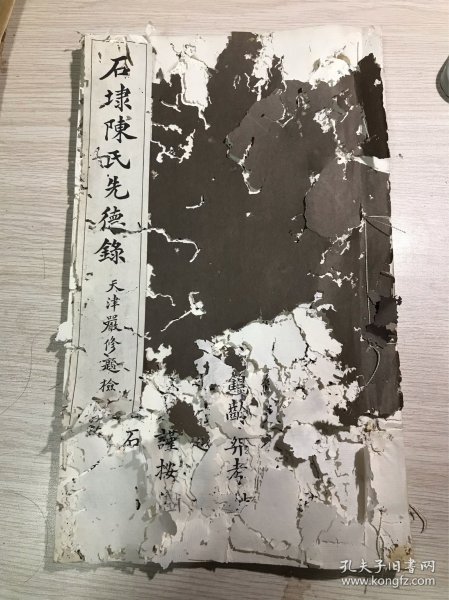 石埭陳氏先德錄
天津嚴修題檢
石
謹按
錫齡
孔夫子旧书网
www.kongfz.com